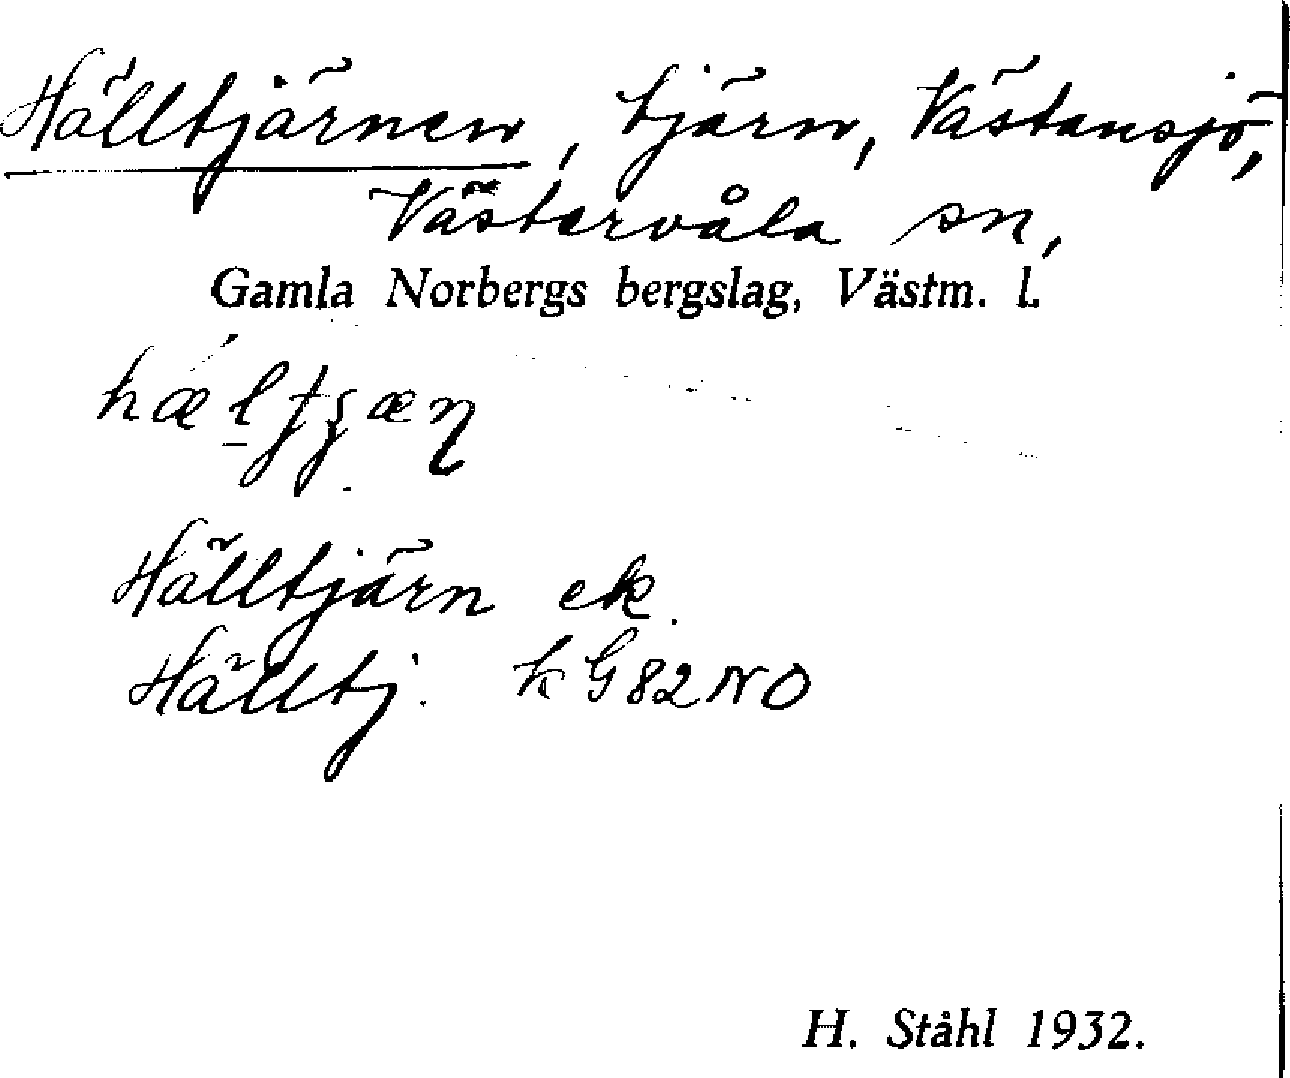 Hälltjärnen, tjärn, Västansjö,
Västervåla sn,
Gamla Norbergs bergslag, Västm. l.
Hälltjärn ek.
Hälltj. k G 82 NO
H. Ståhl 1932.